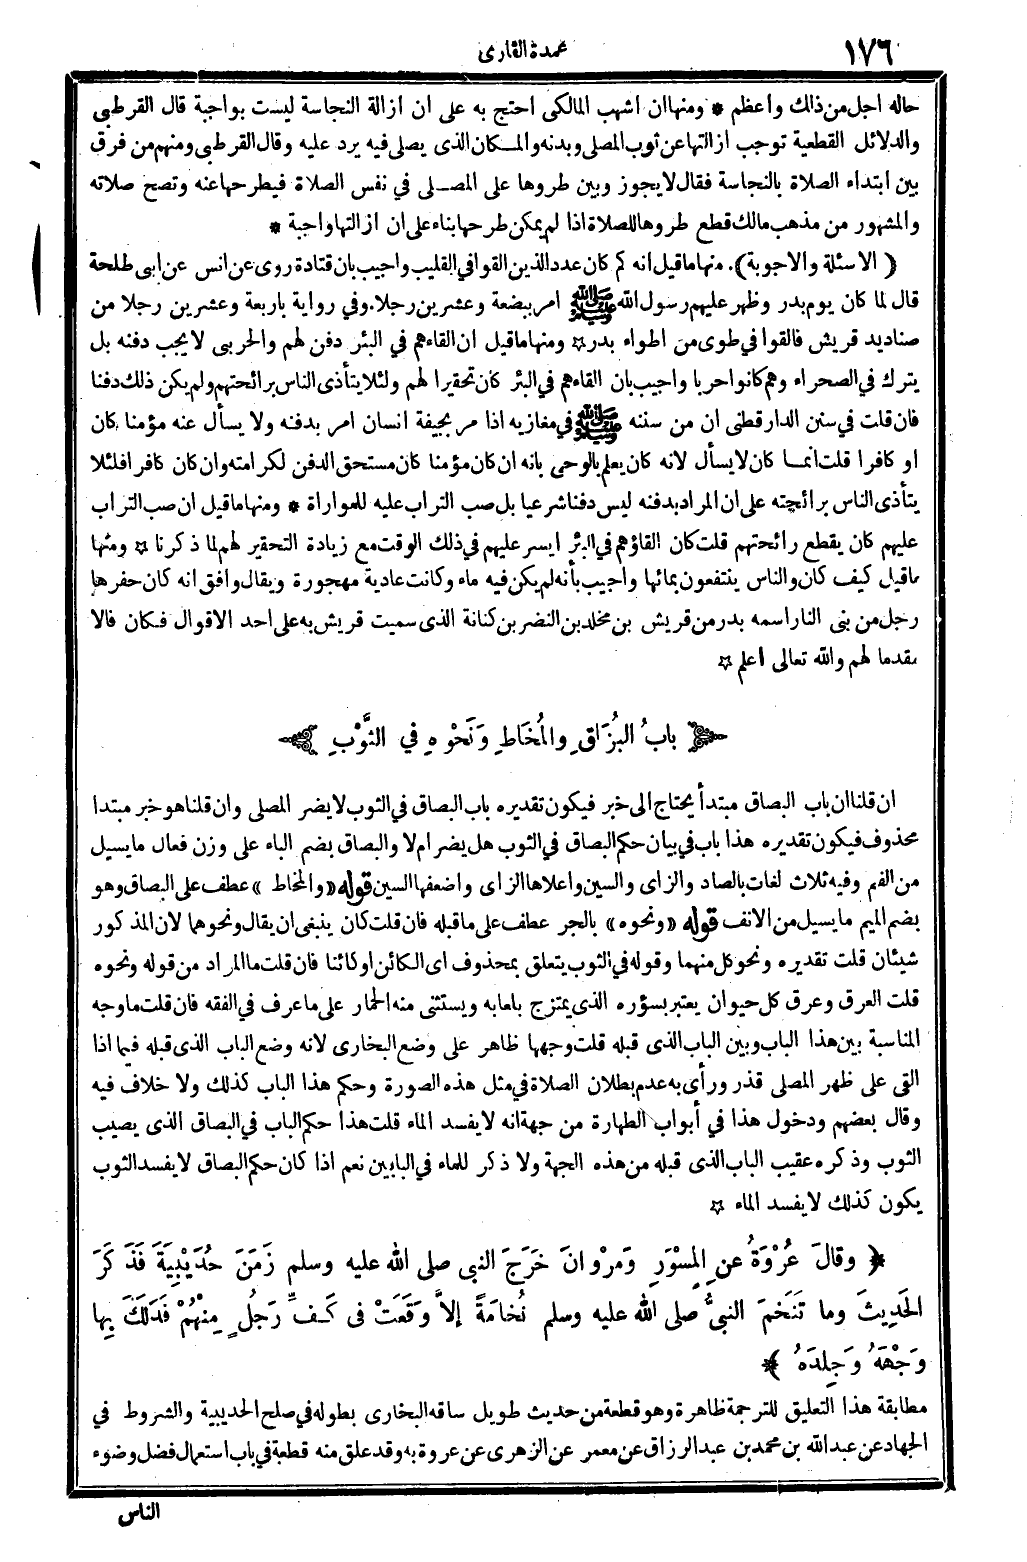 ١٧٦
عمدة القارى
حاله اجل من ذلك واعظم * ومنها ان اشهب المالكى احتج به على ان ازالة النجاسة ليست بواجبة قال القرطبى
والدلائل القطعية توجب ازالتها عن ثوب المصلى وبدنه والمكان الذى يصلى فيه يرد عليه وقال القرطبى ومنهم من فرق
بين ابتداء الصلاة بالنجاسة فقال لا يجوز وبين طروها على المصلى في نفس الصلاة فيطرحها عنه وتصح صلاته
والمشهور من مذهب مالك قطع طروها للصلاة اذا لم يمكن طرحها بناء على ان ازالتها واجبة *
( الاسئلة والاجوبة ). منها ما قيل انه كم كان عدد الذين القوا في القليب واجيب بان قتادة روى عن انس عن ابى طلحة
قال لما كان يوم بدر وظهر عليهم رسول الله ﷺ امر ببضعة وعشرين رجلا. وفي رواية باربعة وعشرين رجلا من
صناديد قريش فالقوا في طوى من اطواء بدر ☆ ومنها ما قيل ان القاءهم في البئر دفن لهم والحربى لا يجب دفنه بل
يترك في الصحراء وهم كانوا حربا واجيب بان القاءهم في البئر كان تحقيرا لهم ولئلا يتأذى الناس برائحتهم ولم يكن ذلك دفنا
فان قلت في سنن الدارقطنى ان من سننه ﷺ في مغازيه اذا مر بجيفة انسان امر بدفنه ولا يسأل عنه مؤمنا كان
او كافرا قلت انما كان لا يسأل لانه كان يعلم بالوحى بانه ان كان مؤمنا كان مستحق الدفن لكرامته وان كان كافرا فلئلا
يتأذى الناس برائحته على ان المراد بدفنه ليس دفنا شرعيا بل صب التراب عليه للمواراة * ومنها ما قيل ان صب التراب
عليهم كان يقطع رائحتهم قلت كان القاؤهم في البئر ايسر عليهم في ذلك الوقت مع زيادة التحقير لهم لما ذكرنا ☆ ومنها
ما قيل كيف كان والناس ينتفعون بمائها واجيب بأنه لم يكن فيه ماء وكانت عادية مهجورة ويقال وافق انه كان حفرها
رجل من بنى النار اسمه بدر من قريش بن مخلد بن النضر بن كنانة الذى سميت قريش به على احد الاقوال فكان فالا
مقدما لهم والله تعالى اعلم ☆
بابُ البُزَاقِ والمُخَاطِ وَنَحْوِهِ في الثَّوْبِ
ان قلنا ان باب البصاق مبتدأ يحتاج الى خبر فيكون تقديره باب البصاق في الثوب لا يضر المصلى وان قلنا هو خبر مبتدا
محذوف فيكون تقديره هذا باب في بيان حكم البصاق في الثوب هل يضر ام لا والبصاق بضم الباء على وزن فعال ما يسيل
من الفم وفيه ثلاث لغات بالصاد والزاى والسين واعلاها الزاى واضعفها السين قوله «والمخاط» عطف على البصاق وهو
بضم الميم ما يسيل من الانف قوله «ونحوه» بالجر عطف على ما قبله فان قلت كان ينبغى ان يقال ونحوهما لان المذكور
شيئان قلت تقديره ونحو كل منهما وقوله في الثوب يتعلق بمحذوف اى الكائن او كائنا فان قلت ما المراد من قوله ونحوه
قلت العرق وعرق كل حيوان يعتبر بسؤره الذى يمتزج بلعابه ويستثنى منه الحمار على ما عرف في الفقه فان قلت ما وجه
المناسبة بين هذا الباب وبين الباب الذى قبله قلت وجهها ظاهر على وضع البخارى لانه وضع الباب الذى قبله فيما اذا
القى على ظهر المصلى قذر ورأى به عدم بطلان الصلاة في مثل هذه الصورة وحكم هذا الباب كذلك ولا خلاف فيه
وقال بعضهم ودخول هذا في أبواب الطهارة من جهة انه لا يفسد الماء قلت هذا حكم الباب في البصاق الذى يصيب
الثوب وذكره عقيب الباب الذى قبله من هذه الجهة ولا ذكر للماء في البابين نعم اذا كان حكم البصاق لا يفسد الثوب
يكون كذلك لا يفسد الماء ☆
﴿ وقالَ عُرْوَةُ عنِ المِسْوَرِ وَمرْوانَ خَرَجَ النبى صلى الله عليه وسلم زَمَنَ حُدَيْبِيَةَ فَذَكَرَ
الحَدِيثَ وما تَنَخَّمَ النبىُّ صلى الله عليه وسلم نُخامَةً إلاَّ وَقَعَتْ فى كَفِّ رَجُلٍ مِنْهُمْ فَدَلَكَ بِها
وَجْهَهُ وَجِلدَهُ ﴾
مطابقة هذا التعليق للترجمة ظاهرة وهو قطعة من حديث طويل ساقه البخارى بطوله في صلح الحديبية والشروط في
الجهاد عن عبد الله بن محمد بن عبد الرزاق عن معمر عن الزهرى عن عروة به وقد علق منه قطعة في باب استعمال فضل وضوء
الناس